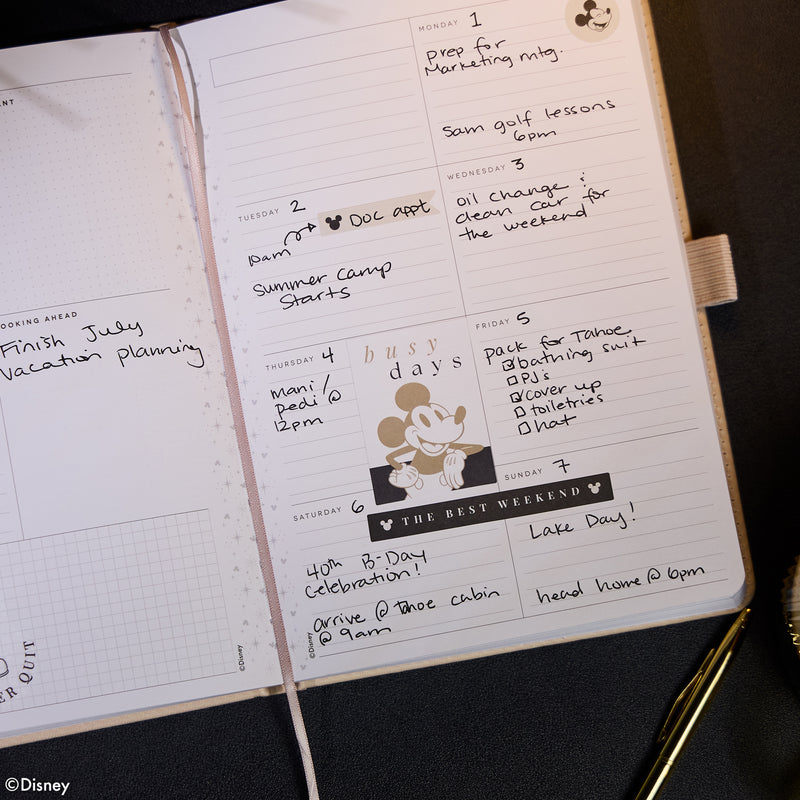 NT
OOKING AHEAD
Finish July
vacation planning
ER QUIT
©Disney
MONDAY 1
prep for
Marketing mtg.
Sam golf lessons
6pm
TUESDAY 2
DOC appt
10am
Summer Camp
Starts
WEDNESDAY 3
oil change &
clean car for
the weekend
THURSDAY 4
mani/
pedi @
12pm
busy
days
FRIDAY 5
pack for Tahoe
bathing suit
PJ's
cover up
toiletries
hat
SATURDAY 6
THE BEST WEEKEND
40th B-Day
Celebration!
arrive @ Tahoe cabin
@ 9am
SUNDAY 7
Lake Day!
head home @ 6pm
©Disney
©Disney